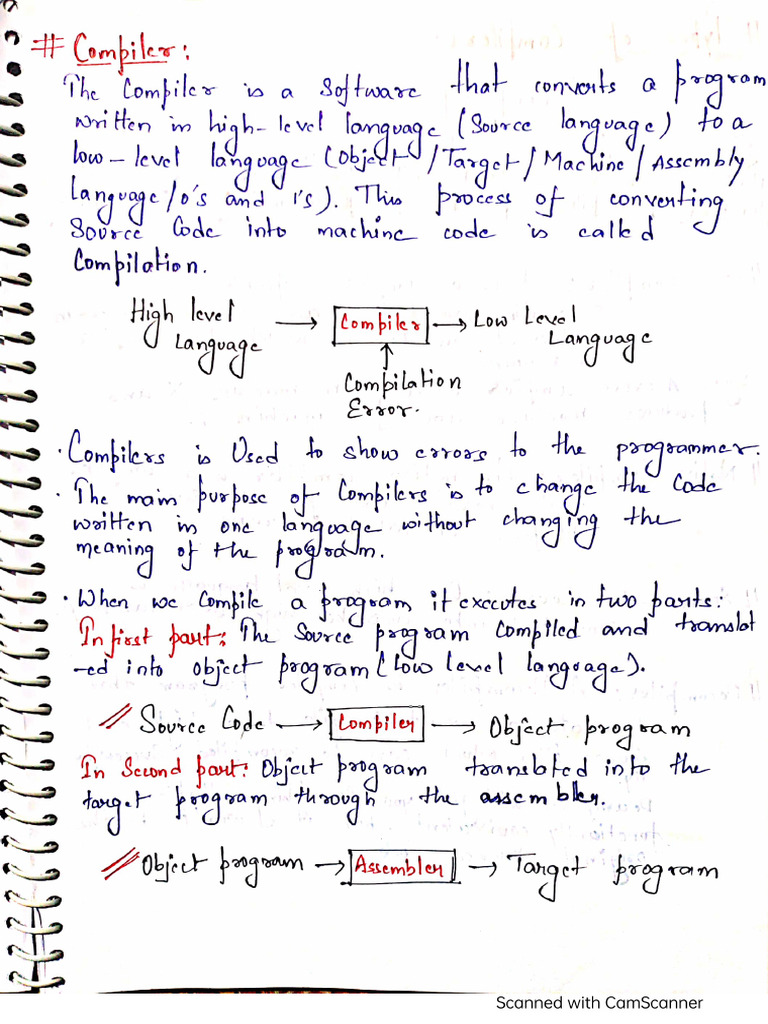 # Compiler:
The Compiler is a Software that converts a program
written in high-level language (Source language) to a
low-level language (Object/Target/Machine/Assembly
Language/0's and 1's). This process of converting
Source Code into machine code is called
Compilation.
High level Language → Compiler → Low Level Language
↑
Compilation
Error.
· Compilers is Used to show errors to the programmer.
· The main purpose of Compilers is to change the Code
written in one language without changing the
meaning of the program.
· When we Compile a program it executes in two parts:
In first part: The Source program Compiled and translat
-ed into object program (low level language).
Source Code → Compiler → Object program
In Second part: Object program translated into the
target program through the assembler.
Object program → Assembler → Target program
Scanned with CamScanner